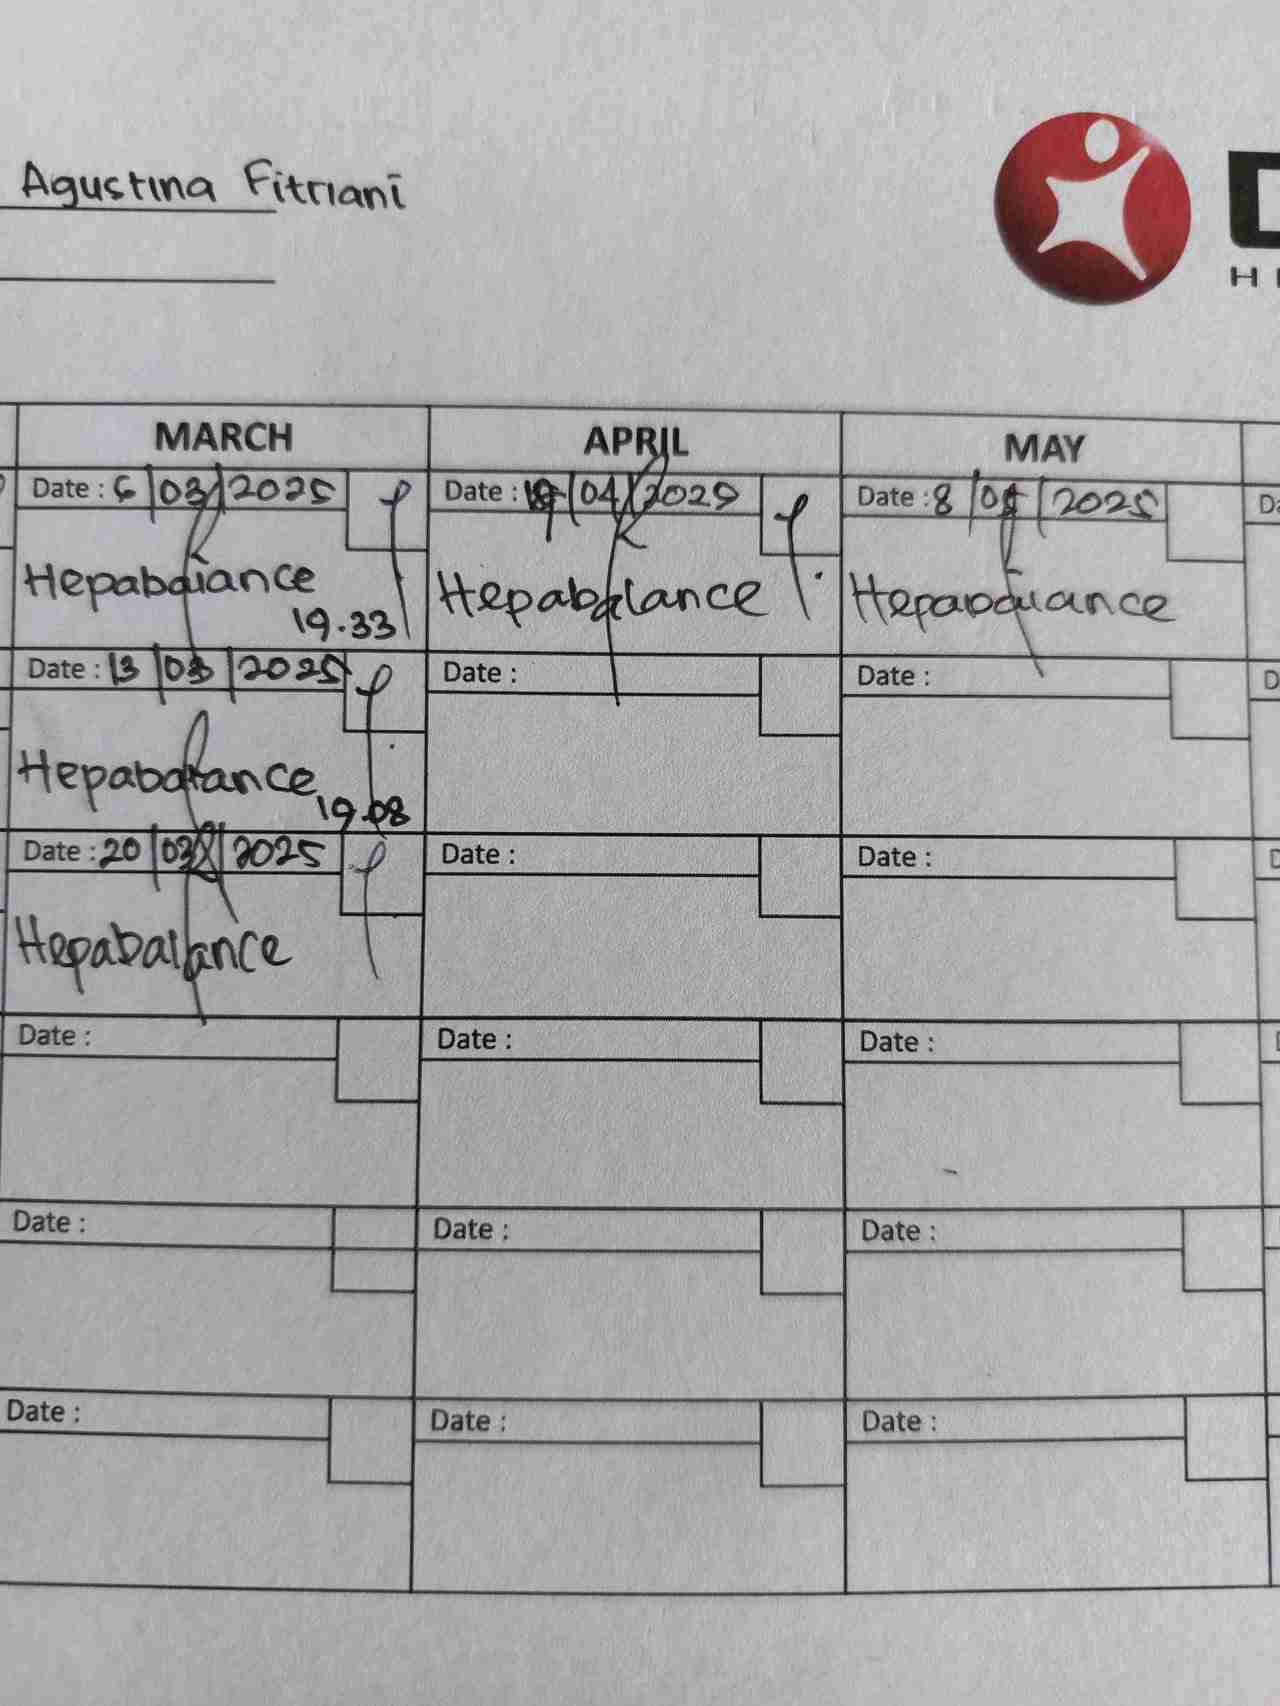 Agustina Fitriani
MARCH APRIL MAY
Date : 6/03/2025 Date : /04/2025 Date : 8/05/2025
Hepabalance Hepabalance Hepabalance
19.33
Date : 13/03/2025 Date : Date :
Hepabalance
19.08
Date : 20/03/2025 Date : Date :
Hepabalance
Date : Date : Date :
Date : Date : Date :
Date : Date : Date :